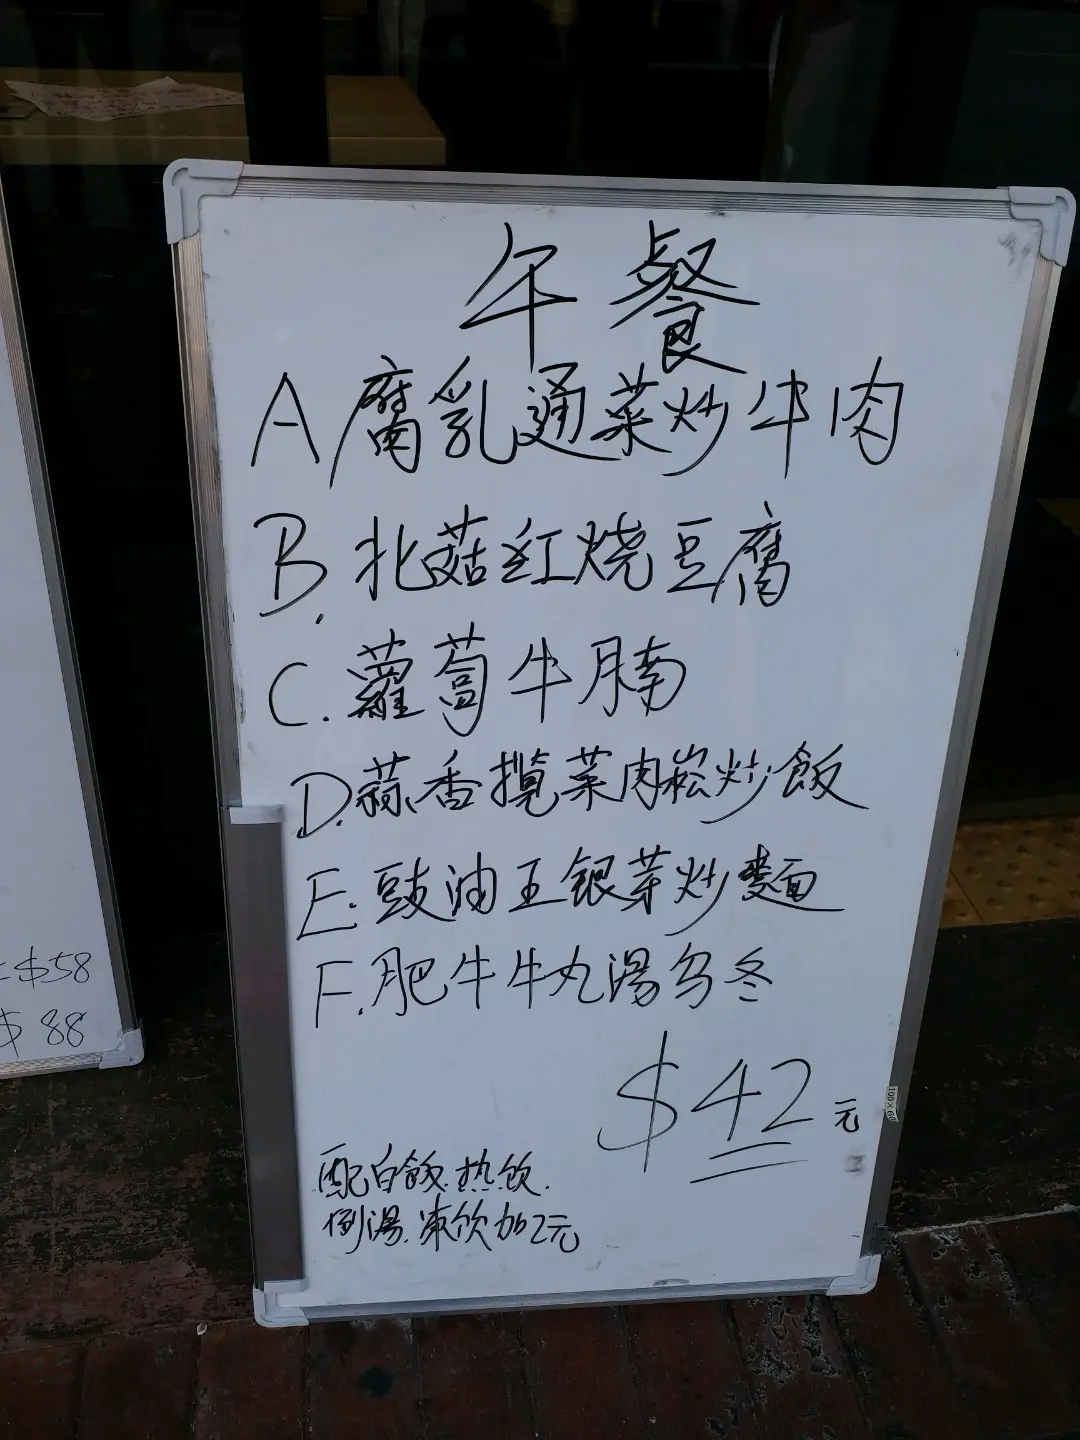 午餐
A 腐乳通菜炒牛肉
B. 北菇红烧豆腐
C. 蘿蔔牛腩
D. 蒜香攬菜肉崧炒飯
E. 豉油王银芽炒麵
F. 肥牛牛丸湯乌冬
$42元
配白飯.热饮.
例湯.凍饮加2元
$58
$88
100×60